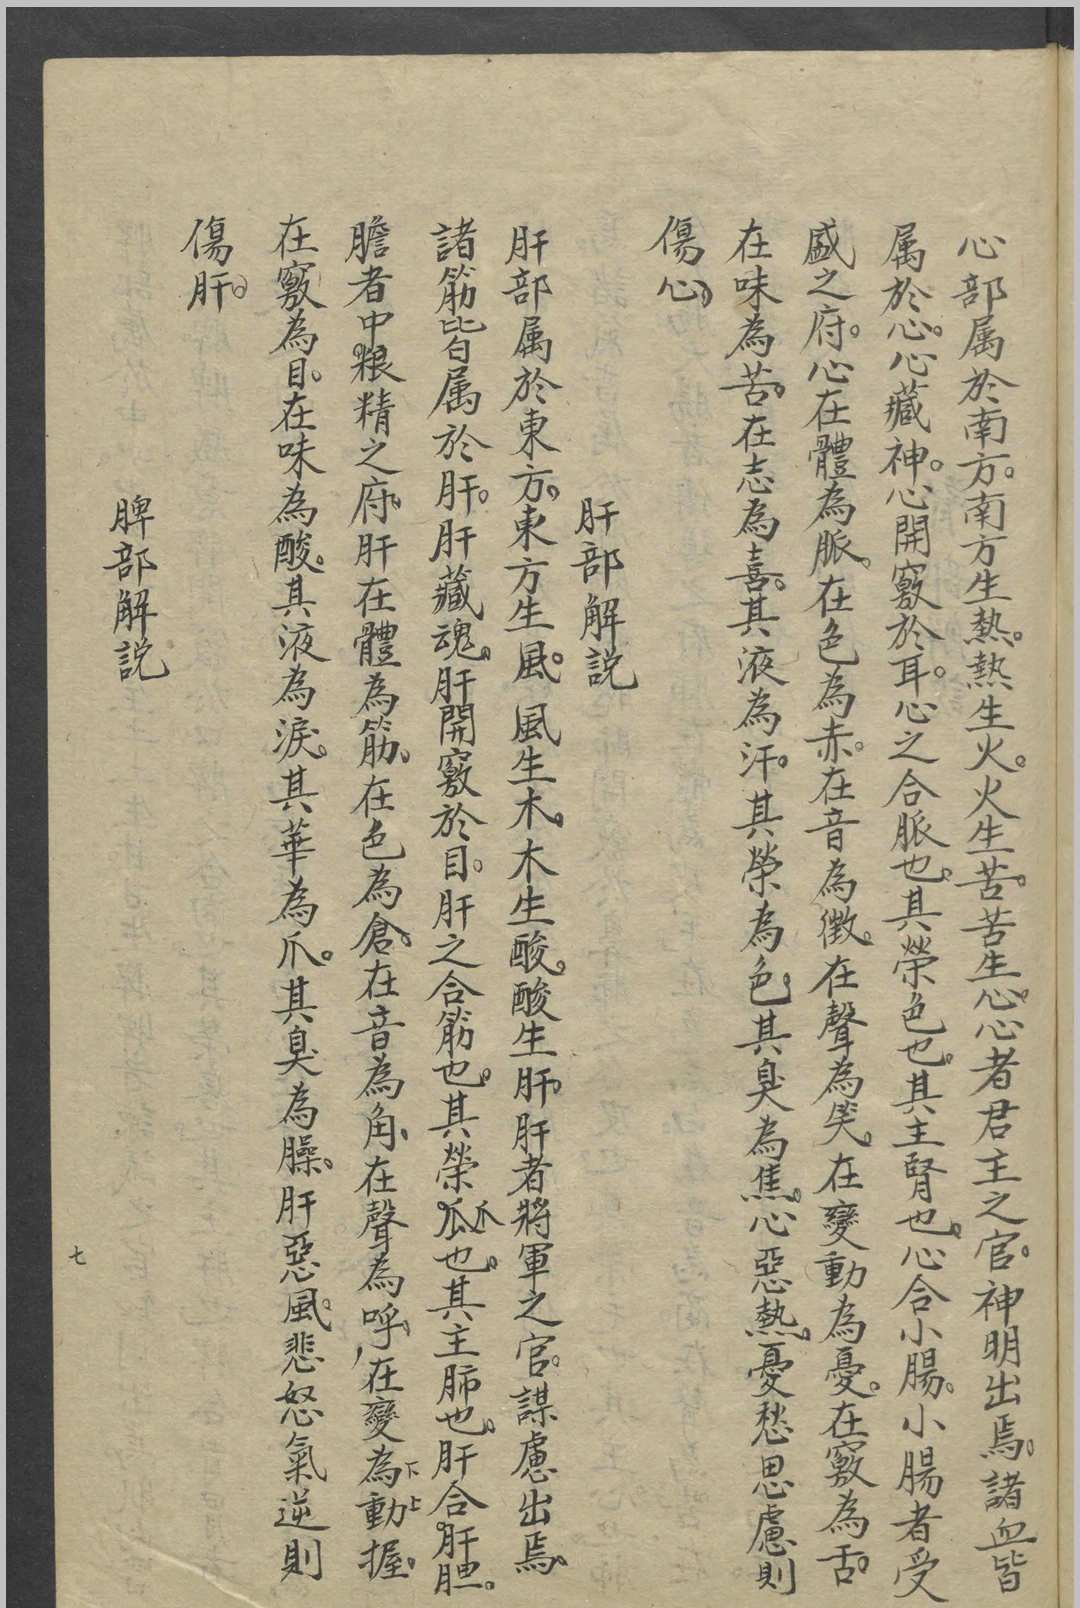 心部属於南方。南方生熱。熱生火。火生苦。苦生心。心者君主之官。神明出焉。諸血皆
属於心。心藏神。心開竅於耳。心之合脈也。其榮色也。其主腎也。心合小腸。小腸者受
盛之府。心在體為脈。在色為赤。在音為徴。在聲為笑。在變動為憂。在竅為舌。
在味為苦。在志為喜。其液為汗。其榮為色。其臭為焦。心惡熱。憂愁思慮則
傷心。
肝部解説
肝部属於東方。東方生風。風生木。木生酸。酸生肝。肝者將軍之官。謀慮出焉。
諸筋皆属於肝。肝藏魂。肝開竅於目。肝之合筋也。其榮瓜爪也。其主肺也。肝合肝胆。
膽者中粮精之府。肝在體為筋。在色為倉。在音為角。在聲為呼。在變為下動上握。
在竅為目。在味為酸。其液為淚。其華為爪。其臭為臊。肝惡風。悲怒氣逆則
傷肝。
脾部解説
七